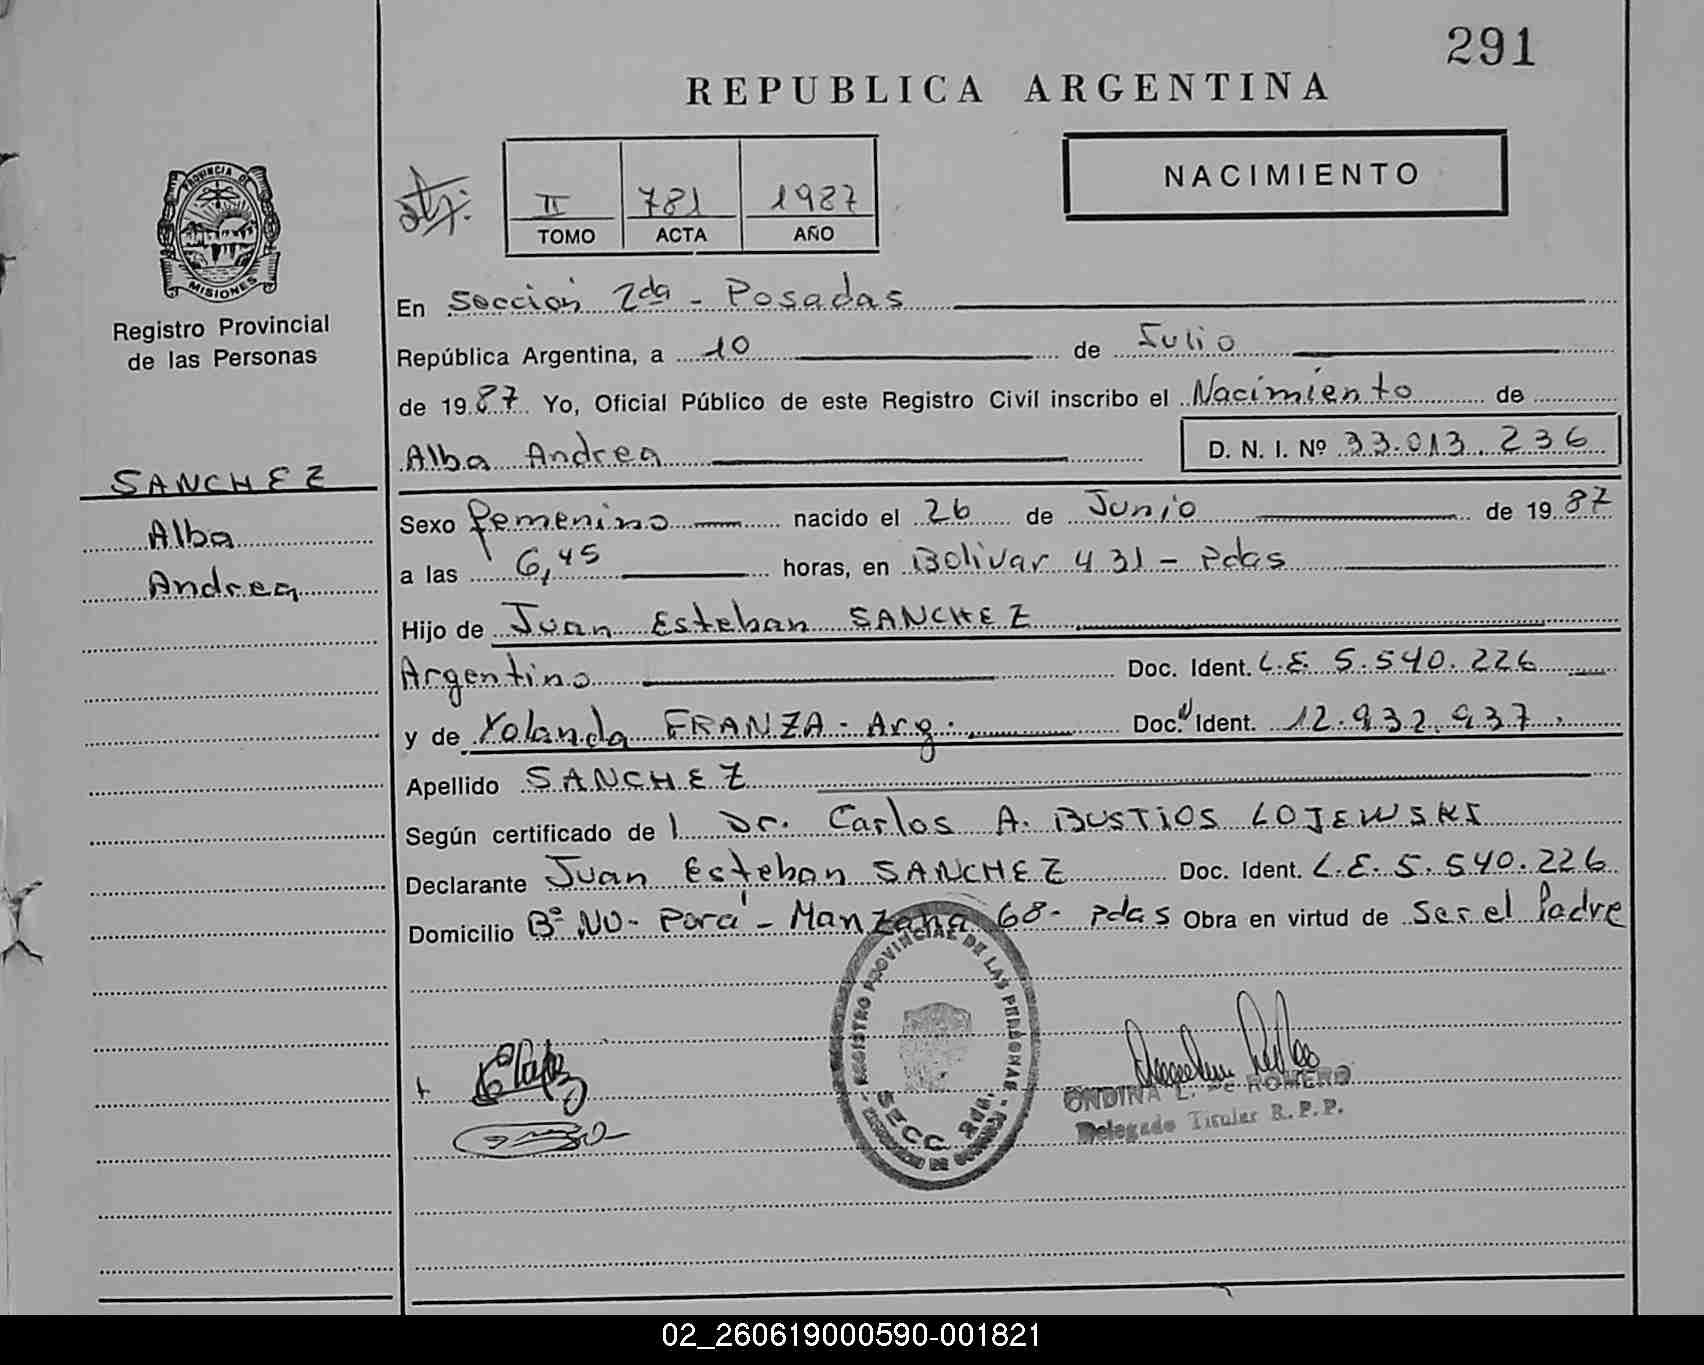 291
REPUBLICA ARGENTINA
NACIMIENTO
II 781 1987
TOMO ACTA AÑO
PROVINCIA DE
MISIONES
Registro Provincial
de las Personas
En Sección 2da - Posadas
República Argentina, a 10 de Julio
de 1987 Yo, Oficial Público de este Registro Civil inscribo el Nacimiento de
Alba Andrea D. N. I. Nº 33.013.236
SANCHEZ
Alba
Andrea
Sexo femenino nacido el 26 de Junio de 1987
a las 6,45 horas, en Bolivar 431 - Pdas
Hijo de Juan Esteban SANCHEZ
Argentino Doc. Ident. L.E. 5.540.226
y de Yolanda FRANZA - Arg. Doc. Ident. 12.932.937
Apellido SANCHEZ
Según certificado de l Dr. Carlos A. BUSTIOS LOJEWSKI
Declarante Juan Esteban SANCHEZ Doc. Ident. L.E. 5.540.226
Domicilio Bº ÑU - Porá - Manzana 68 - Pdas Obra en virtud de Ser el Padre
REGISTRO PROVINCIAL DE LAS PERSONAS
SECC. 2da.
ONDINA L. DE ROMERO
Delegado Titular R.P.P.
02_260619000590-001821